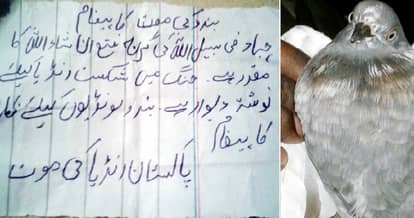 کی موت کا پیغام
جہاد فی سبیل اللہ کی فتح انشاءاللہ کا
مقدر ہے۔ جنگ میں شکست انڈیا کیلئے
نوشتہ دیوار ہے۔ کیلئے
کا پیغام
پاکستان انڈیا کی موت